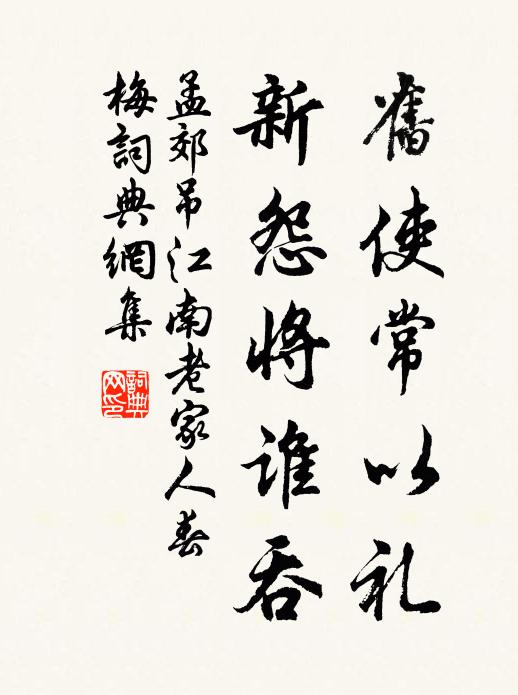 舊使常以礼
新怨将谁吞
孟郊吊江南老家人春
梅詞典網集
詞典
网印